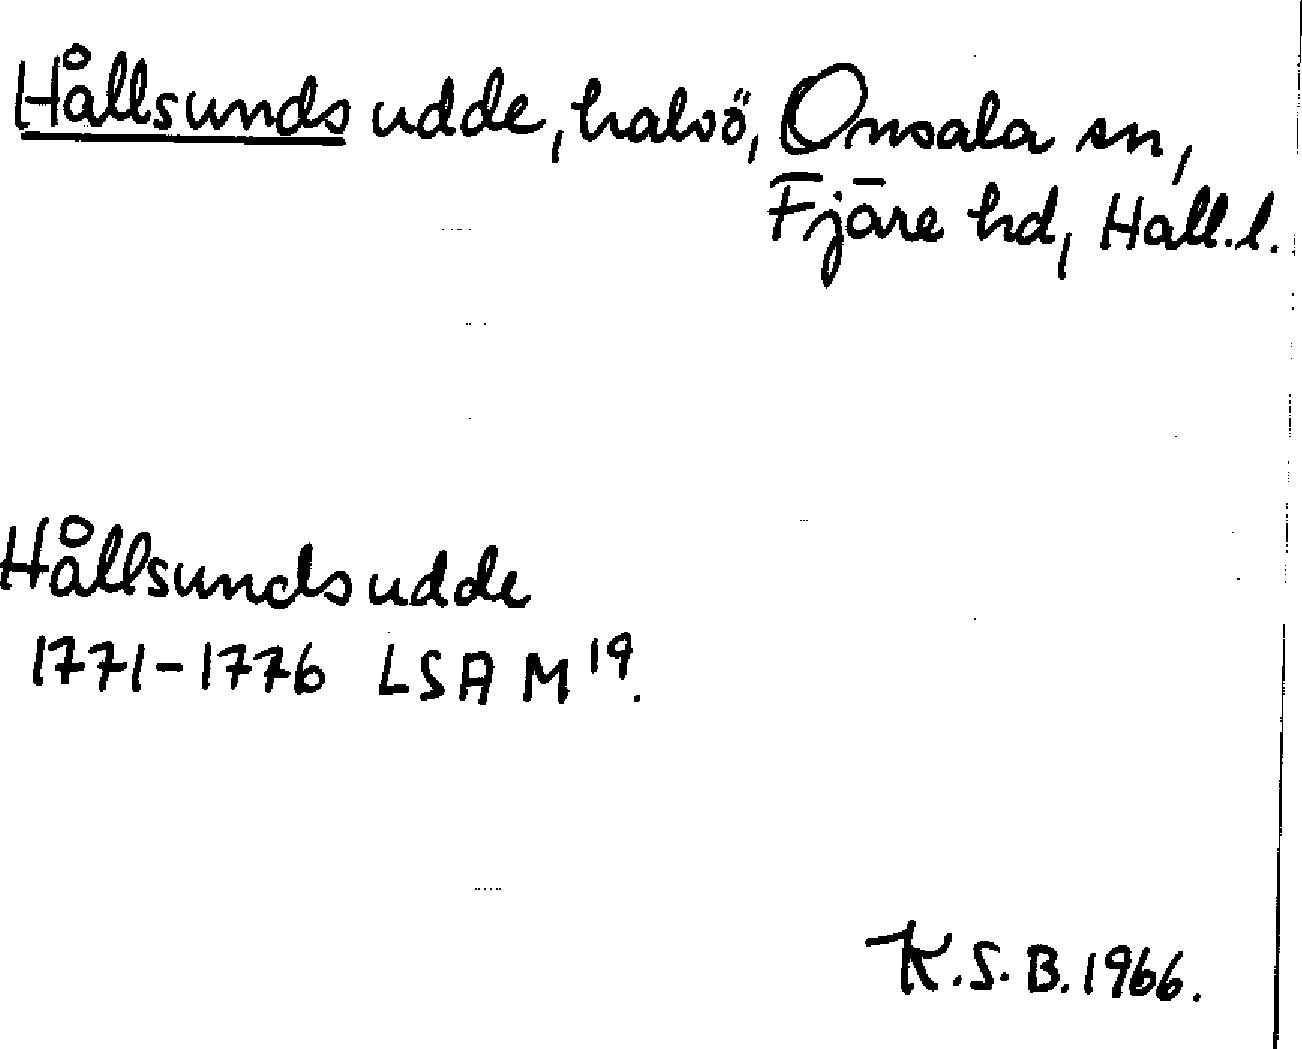 Hållsunds udde, halvö, Onsala sn,
Fjäre hd, Hall.l.
Hållsunds udde
1771-1776 LSA M 19.
K.S.B. 1966.